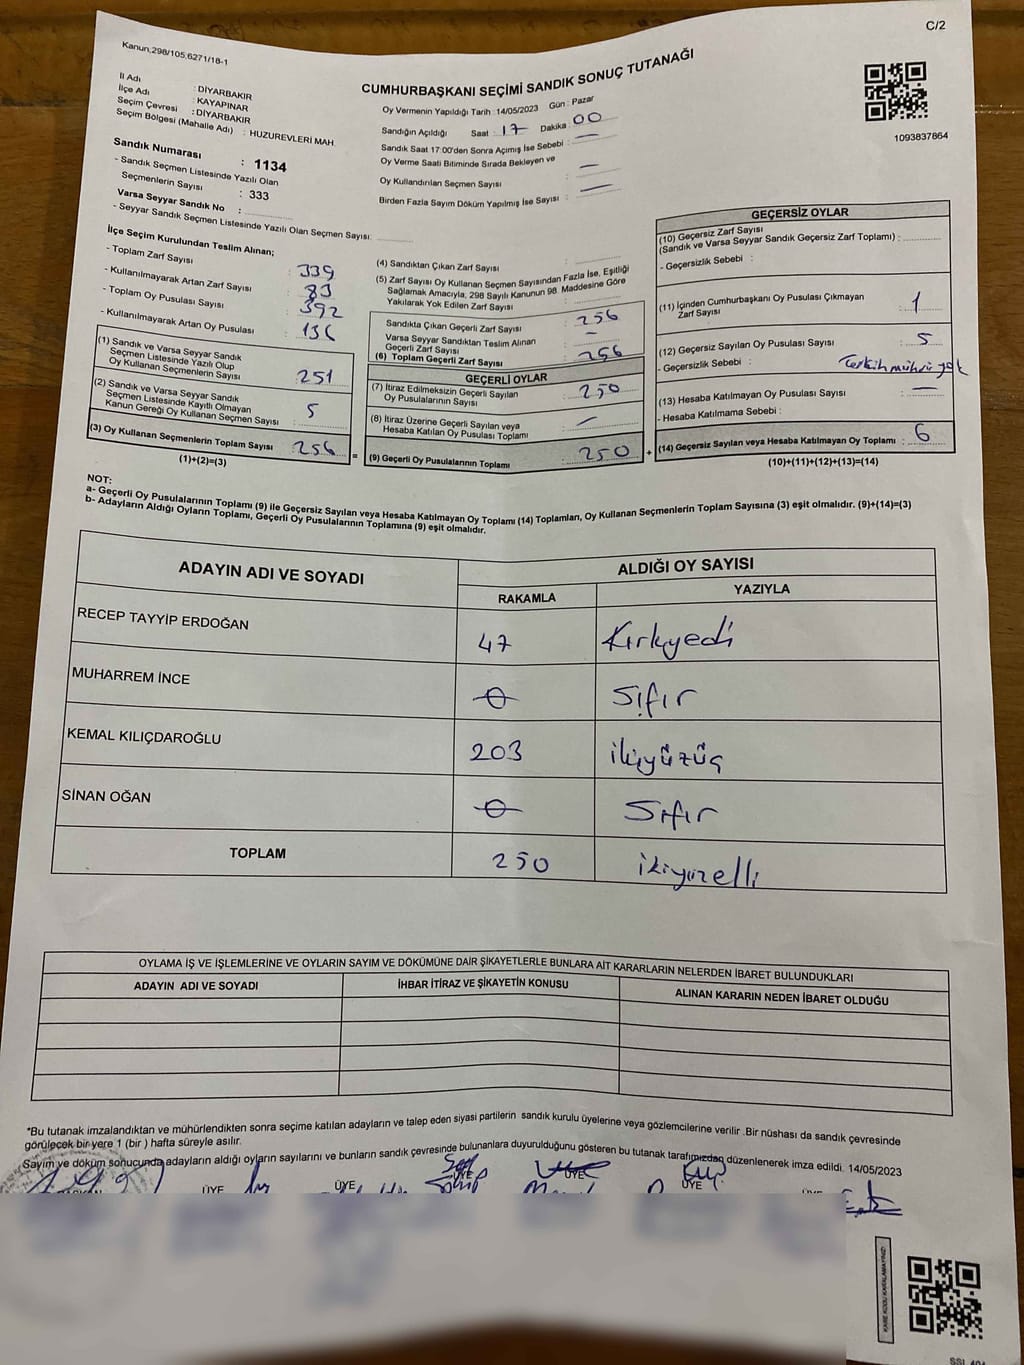 C/2
Kanun;298/105;6271/18-1
CUMHURBAŞKANI SEÇİMİ SANDIK SONUÇ TUTANAĞI
1093837864
İl Adı : DİYARBAKIR
İlçe Adı : KAYAPINAR
Seçim Çevresi : DİYARBAKIR
Seçim Bölgesi (Mahalle Adı) : HUZUREVLERİ MAH.
Sandık Numarası : 1134
- Sandık Seçmen Listesinde Yazılı Olan
Seçmenlerin Sayısı : 333
Varsa Seyyar Sandık No :
- Seyyar Sandık Seçmen Listesinde Yazılı Olan Seçmen Sayısı:
Oy Vermenin Yapıldığı Tarih : 14/05/2023 Gün : Pazar
Sandığın Açıldığı Saat : 17 Dakika : 00
Sandık Saat 17:00'den Sonra Açımış İse Sebebi : —
Oy Verme Saati Bitiminde Sırada Bekleyen ve
Oy Kullandırılan Seçmen Sayısı : —
Birden Fazla Sayım Döküm Yapılmış İse Sayısı : —
İlçe Seçim Kurulundan Teslim Alınan;
- Toplam Zarf Sayısı : 339
- Kullanılmayarak Artan Zarf Sayısı : 83
- Toplam Oy Pusulası Sayısı : 392
- Kullanılmayarak Artan Oy Pusulası : 136
(1) Sandık ve Varsa Seyyar Sandık
Seçmen Listesinde Yazılı Olup
Oy Kullanan Seçmenlerin Sayısı : 251
(2) Sandık ve Varsa Seyyar Sandık
Seçmen Listesinde Kayıtlı Olmayan
Kanun Gereği Oy Kullanan Seçmen Sayısı : 5
(3) Oy Kullanan Seçmenlerin Toplam Sayısı : 256
(1)+(2)=(3)
(4) Sandıktan Çıkan Zarf Sayısı :
(5) Zarf Sayısı Oy Kullanan Seçmen Sayısından Fazla İse, Eşitliği
Sağlamak Amacıyla, 298 Sayılı Kanunun 98. Maddesine Göre
Yakılarak Yok Edilen Zarf Sayısı :
Sandıkta Çıkan Geçerli Zarf Sayısı : 256
Varsa Seyyar Sandıktan Teslim Alınan
Geçerli Zarf Sayısı : —
(6) Toplam Geçerli Zarf Sayısı : 256
GEÇERLİ OYLAR
(7) İtiraz Edilmeksizin Geçerli Sayılan
Oy Pusulalarının Sayısı : 250
(8) İtiraz Üzerine Geçerli Sayılan veya
Hesaba Katılan Oy Pusulası Toplamı : —
(9) Geçerli Oy Pusulalarının Toplamı : 250
GEÇERSİZ OYLAR
(10) Geçersiz Zarf Sayısı
(Sandık ve Varsa Seyyar Sandık Geçersiz Zarf Toplamı) :
- Geçersizlik Sebebi :
(11) İçinden Cumhurbaşkanı Oy Pusulası Çıkmayan
Zarf Sayısı : 1
(12) Geçersiz Sayılan Oy Pusulası Sayısı : 5
- Geçersizlik Sebebi : Tercih mührü yok
(13) Hesaba Katılmayan Oy Pusulası Sayısı : —
- Hesaba Katılmama Sebebi :
(14) Geçersiz Sayılan veya Hesaba Katılmayan Oy Toplamı : 6
(10)+(11)+(12)+(13)=(14)
NOT:
a- Geçerli Oy Pusulalarının Toplamı (9) ile Geçersiz Sayılan veya Hesaba Katılmayan Oy Toplamı (14) Toplamları, Oy Kullanan Seçmenlerin Toplam Sayısına (3) eşit olmalıdır. (9)+(14)=(3)
b- Adayların Aldığı Oyların Toplamı, Geçerli Oy Pusulalarının Toplamına (9) eşit olmalıdır.
ADAYIN ADI VE SOYADI ALDIĞI OY SAYISI
RAKAMLA YAZIYLA
RECEP TAYYİP ERDOĞAN 47 Kırkyedi
MUHARREM İNCE 0 Sıfır
KEMAL KILIÇDAROĞLU 203 ikiyüzüç
SİNAN OĞAN 0 Sıfır
TOPLAM 250 ikiyüzelli
OYLAMA İŞ VE İŞLEMLERİNE VE OYLARIN SAYIM VE DÖKÜMÜNE DAİR ŞİKAYETLERLE BUNLARA AİT KARARLARIN NELERDEN İBARET BULUNDUKLARI
ADAYIN ADI VE SOYADI İHBAR İTİRAZ VE ŞİKAYETİN KONUSU ALINAN KARARIN NEDEN İBARET OLDUĞU
*Bu tutanak imzalandıktan ve mühürlendikten sonra seçime katılan adayların ve talep eden siyasi partilerin sandık kurulu üyelerine veya gözlemcilerine verilir .Bir nüshası da sandık çevresinde
görülecek bir yere 1 (bir ) hafta süreyle asılır.
Sayım ve döküm sonucunda adayların aldığı oyların sayılarını ve bunların sandık çevresinde bulunanlara duyurulduğunu gösteren bu tutanak tarafımızdan düzenlenerek imza edildi. 14/05/2023
ÜYE ÜYE ÜYE ÜYE ÜYE